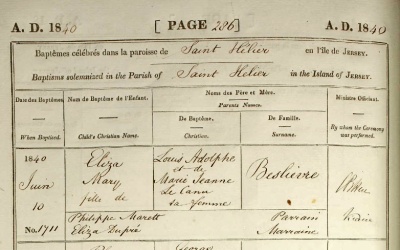 A. D. 1840 [ PAGE 286 ] A. D. 1840
Baptêmes célébrés dans la paroisse de Saint Hélier en l'Ile de JERSEY.
Baptisms solemnized in the Parish of Saint Hélier in the Island of JERSEY.
Date des Baptêmes
When Baptized.
Nom de Baptême de l'Enfant.
Child's Christian Name.
Noms des Père et Mère.
Parents Names.
De Baptême.
Christian.
De Famille.
Surname.
Ministre Officiant.
By whom the Ceremony was performed.
1840
Juin
10
No. 1711
Eliza
Mary
fille de
Louis Adolphe
et de
Marie Jeanne
Le Canu
sa femme
Beslièvre
Philippe Marett Parrain
Eliza Dupré Marraine
George